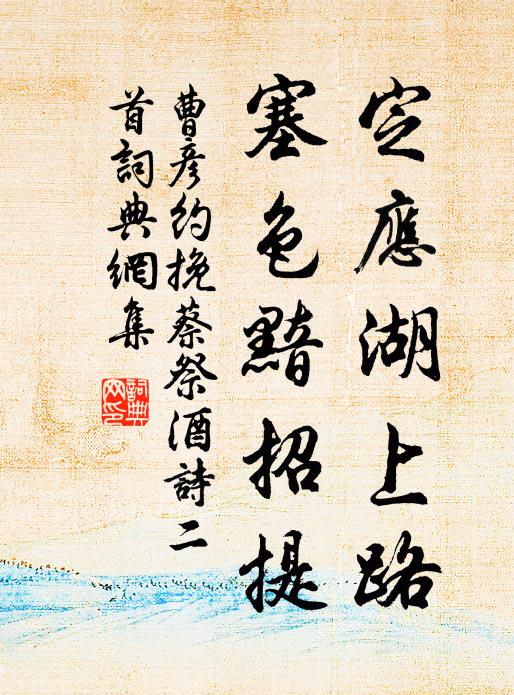 定應湖上路
塞色黯招提
曹彥約挽蔡祭酒詩二
首詞典網集
詞典网印